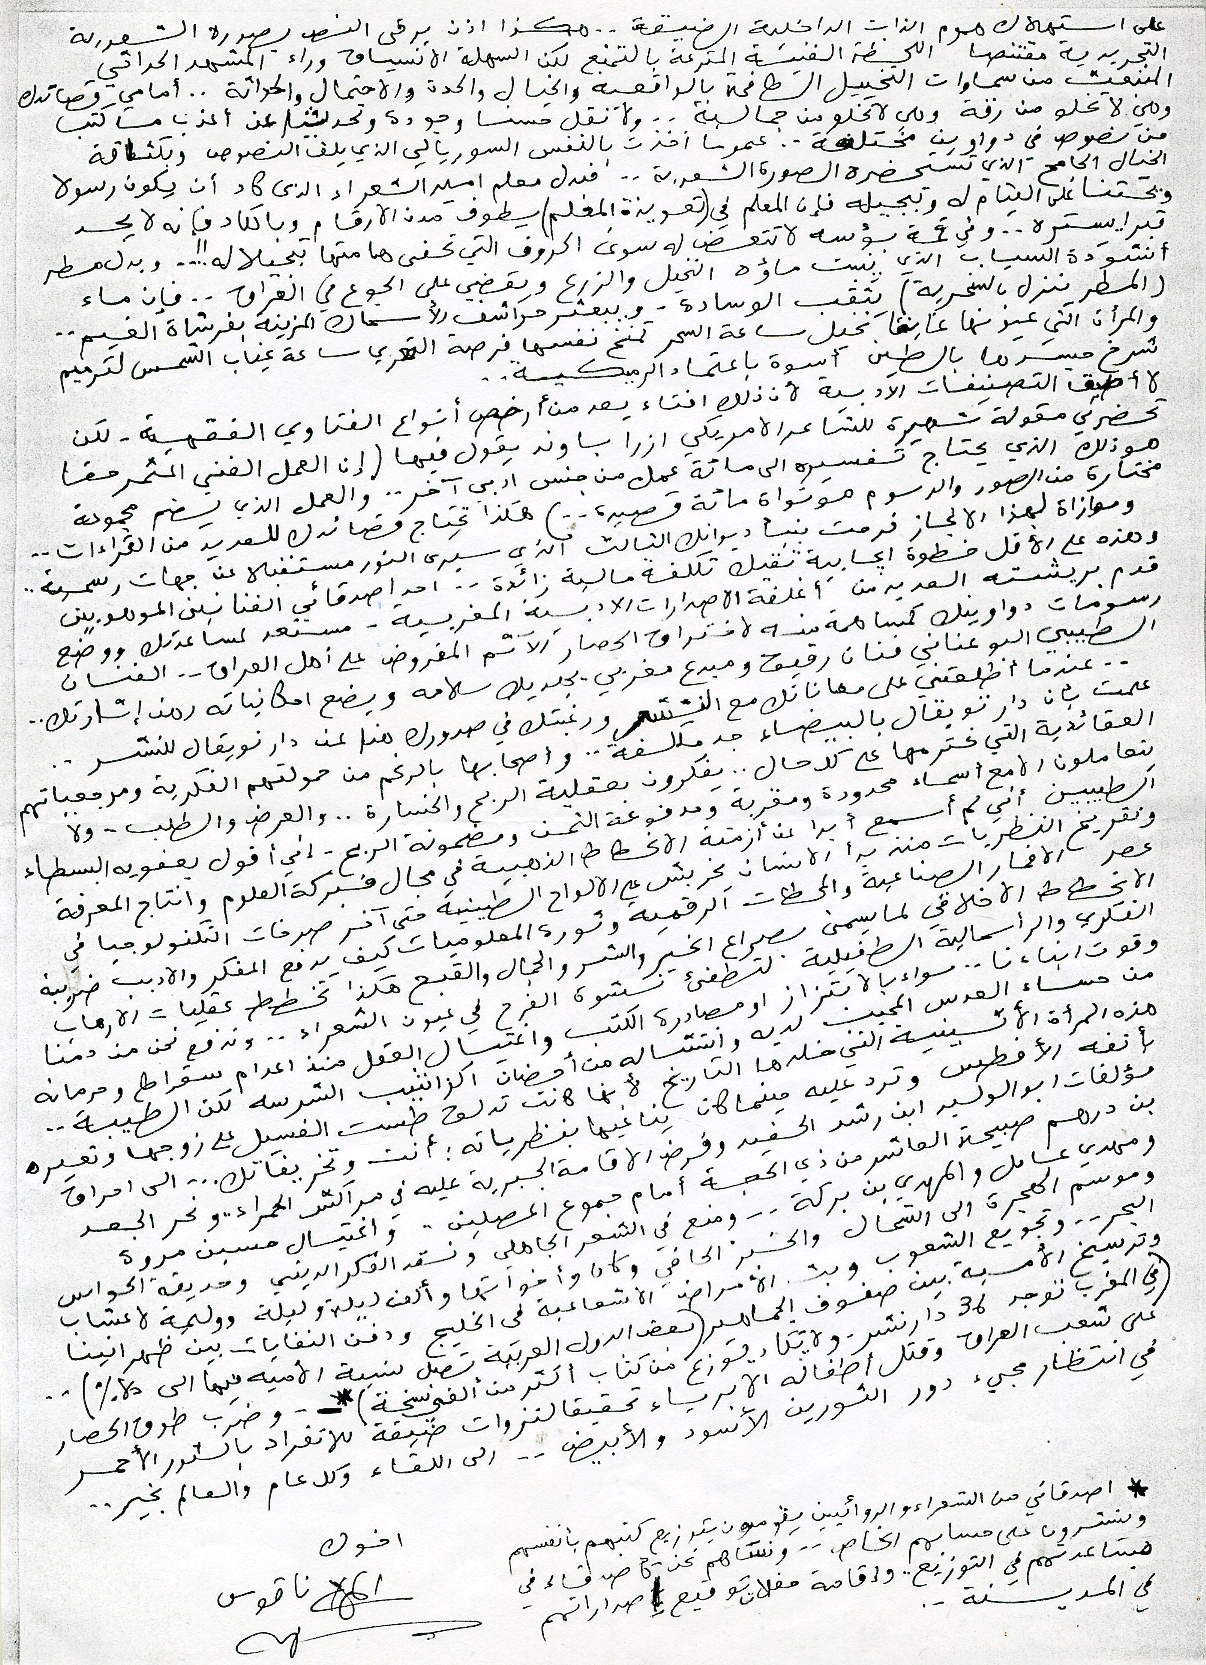 على استهلاك هموم الذات الداخلية الضيقة .. هكذا اذن يرقى النص بصورة الشعرية
التجريدية مقتنصا اللحظة الفنية المترعة بالتمنع لكن السهلة الانسياق وراء المشهد الحداثي
المنفلت من سماوات التخييل الطافح بالواقعية والخيال والحدة والاحتمال والحداثة .. أمامي قصائدك
وهي لا تخلو من رقة وهي لا تخلو من جمالية .. ولا تقل حسنا وجودة وتحديثا عن أعذب ما كتبت
من نصوص في دواوين مختلفة .. عموما أخذت بالنفس السوريالي الذي يلف النصوص وبكثافة
الخيال الجامح الذي تستحضره الصورة الشعرية .. فبدل معلم امير الشعراء الذي كاد أن يكون رسولا
ويحثنا على القيام له وتبجيله فإن المعلم في (تعويذة المعلم) يطوف مدن الأرقام وبالكاد فإنه لا يجد
قبرا يستره .. وفي قمة بؤسه لا تتعرض له سوى الحروف التي تحني هامتها تبجيلا له !!.. وبدل مطر
أنشودة السياب الذي ينبت ماؤه النخيل والزرع ويقضي على الجوع في العراق .. فإن ماء
(المطر ينزل بالسخرية) يثقب الوسادة .. ويبعثر حراشف الأسماك المزينة بفرشاة الغيم ..
والمرأة التي عيونها غابتا نخيل ساعة السحر تمنح نفسها فرصة التعري ساعة غياب الشمس لترميم
شرخ جسدها بالطين أسوة باعتماد الرميكية ..
لا أطيق التصنيفات الأدبية لأن ذلك افتاء يعد من أرخص أنواع الفتاوي الفقهية - لكن
تحضرني مقولة شهيرة للشاعر الامريكي ازرا باوند يقول فيها (إن العمل الفني المثمر حقا
هو ذلك الذي يحتاج تفسيره الى مائة عمل من جنس ادبي آخر .. والعمل الذي يضم مجموعة
مختارة من الصور والرسوم هو نواة مائة قصيدة ..) هكذا تحتاج قصائدك للعديد من القراءات ..
وموازاة لهذا الانجاز فرحت بنبأ ديوانك الثالث الذي سيرى النور مستقبلا عن جهات رسمية ..
وهذه على الأقل خطوة ايجابية تقيك تكلفة مالية زائدة .. احد اصدقائي الفنانين الموهوبين
قدم بريشته العديد من أغلفة الاصدارات الادبية المغربية - مستعد لمساعدتك ووضع
رسومات دواوينك كمساهمة منه لاختراق الحصار الآثم المفروض على أهل العراق .. الفنان
الطيبي البوعناني فنان رقيق ومبدع مغربي - يهديك سلامه ويضع امكانياته رهن إشارتك ..
.. عندما أطلعتني على معاناتك مع النشر ورغبتك في صدورك هذا عن دار توبقال للنشر ..
علمت بأن دار توبقال بالبيضاء جد مكلفة .. وأصحابها بالرغم من حمولتهم الفكرية ومرجعياتهم
العقائدية التي نحترمها على كل حال .. يفكرون بعقلية الربح والخسارة .. والعرض والطلب - ولا
يتعاملون الا مع أسماء محدودة ومقربة ومدفوعة الثمن ومضمونة الربح - إني أقول بعفوية البسطاء
الطيبين أني لم أسمع أبدا عن أزمنة الانحطاط الذهبية في مجال فبركة العلوم وانتاج المعرفة
وتفريخ النظريات منذ بدأ الانسان يخربش على الالواح الطينية حتى آخر صرخات التكنولوجيا في
عصر الاقمار الصناعية والمحطات الرقمية وثورة المعلوميات كيف يدفع المفكر والاديب ضريبة
الانحطاط الاخلاقي لما يسمى بصراع الخير والشر والجمال والقبح هكذا تخطط عقليات الارهاب
الفكري والراسمالية الطفيلية لتطفئ نشوة الفرح في عيون الشعراء .. وندفع نحن من دمنا
وقوت ابناءنا .. سواء بالابتزاز او مصادرة الكتب واغتيال العقل منذ اعدام سقراط وحرمانه
من حساء العدس المحبب لديه وانتشاله من أحضان اكزانتيب الشرسة لكن الطيبة ..
هذه المرأة الأثينية التي خلدها التاريخ لأنها كانت تدلق طست الغسيل على زوجها وتعيره
بأنفه الأفطس وترد عليه حينما كان يناغيها بنظرياته : أنت وتخريفاتك ... الى احراق
مؤلفات ابو الوليد ابن رشد الحفيد وفرض الاقامة الجبرية عليه في مراكش الحمراء .. ونحر الجعد
بن درهم صبيحة العاشر من ذي الحجة أمام جموع المصلين .. واغتيال حسين مروة
ومهدي عامل والمهدي بن بركة .. ومنع في الشعر الجاهلي ونقد الفكر الديني وحديقة الحواس
وموسم الهجرة الى الشمال والخبز الحافي وكان وأخواتها وألف ليلة وليلة ووليمة لاعشاب
البحر .. وتجويع الشعوب وبث الأمراض الاشعاعية في الخليج ودفن النفايات بين ظهرانينا
وترسيخ الأمية بين صفوف الجماهير (بعض الدول العربية تصل نسبة الأمية فيها الى %) ..
(في المغرب توجد 36 دار نشر - ولا يكاد يتوزع من كتاب أكثر من ألفي نسخة) * .. وضرب طوق الحصار
على شعب العراق وقتل أطفاله الابرياء تحقيقا لنزوات ضيقة للانفراد بالثور الأحمر
في انتظار مجيء دور الثورين الأسود والأبيض .. الى اللقاء وكل عام والعالم بخير ..
* اصدقائي من الشعراء والروائيين يقومون بتوزيع كتبهم بأنفسهم
وينشرون على حسابهم الخاص .. ونشاهم نحن كأصدقاء في
مساعدتهم في التوزيع .. وإقامة حفلات توقيع إصداراتهم
في المدينة ..
اخوك
ناقوس